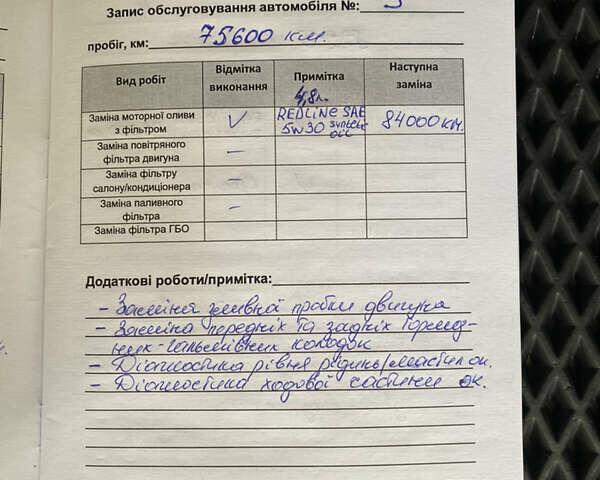 Запис обслуговування автомобіля №:
пробіг, км: 75600 км.
Вид робіт Відмітка виконання Примітка Наступна заміна
4,8л.
Заміна моторної оливи з фільтром V REDLINE SAE 5W30 synthetic oil 84000 км.
Заміна повітряного фільтра двигуна –
Заміна фільтру салону/кондиціонера –
Заміна паливного фільтра –
Заміна фільтра ГБО
Додаткові роботи/примітка:
- Заміна зливної пробки двигуна
- Заміна передніх та задніх тормоз-
них-гальмівних колодок
- Діагностика рівня рідин/мастил ок.
- Діагностика ходової частини ок.